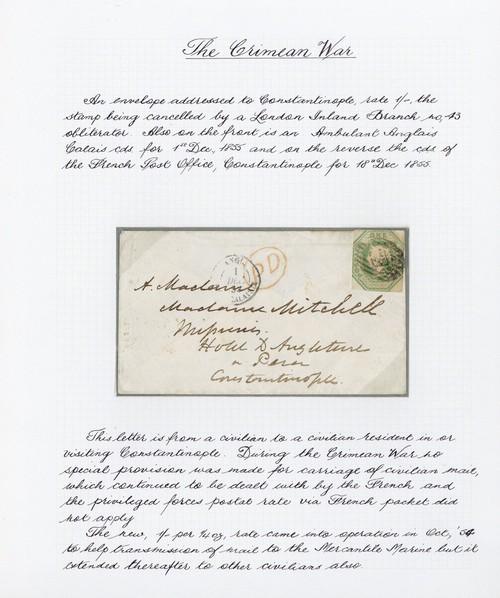 The Crimean War
An envelope addressed to Constantinople, rate 1/-, the
stamp being cancelled by a London Inland Branch no, 43
obliterator. Also on the front, is an Ambulant Anglais
Calais cds for 1st Dec, 1855 and on the reverse the cds of
the French Post Office, Constantinople for 18th Dec 1855.
ONE
PD
ANGL
1
DEC
CALAIS
A. Madame
Madame Mitchell
Hotel D Angleterre
a Pera
Constantinople.
This letter is from a civilian to a civilian resident in or
visiting Constantinople. During the Crimean War no
special provision was made for carriage of civilian mail,
which continued to be dealt with by the French and
the privileged forces postal rate via French packet did
not apply
The new, 1/- per ¼ oz, rate came into operation in Oct, '54
to help transmission of mail to the Mercantile Marine but it
extended thereafter to other civilians also.